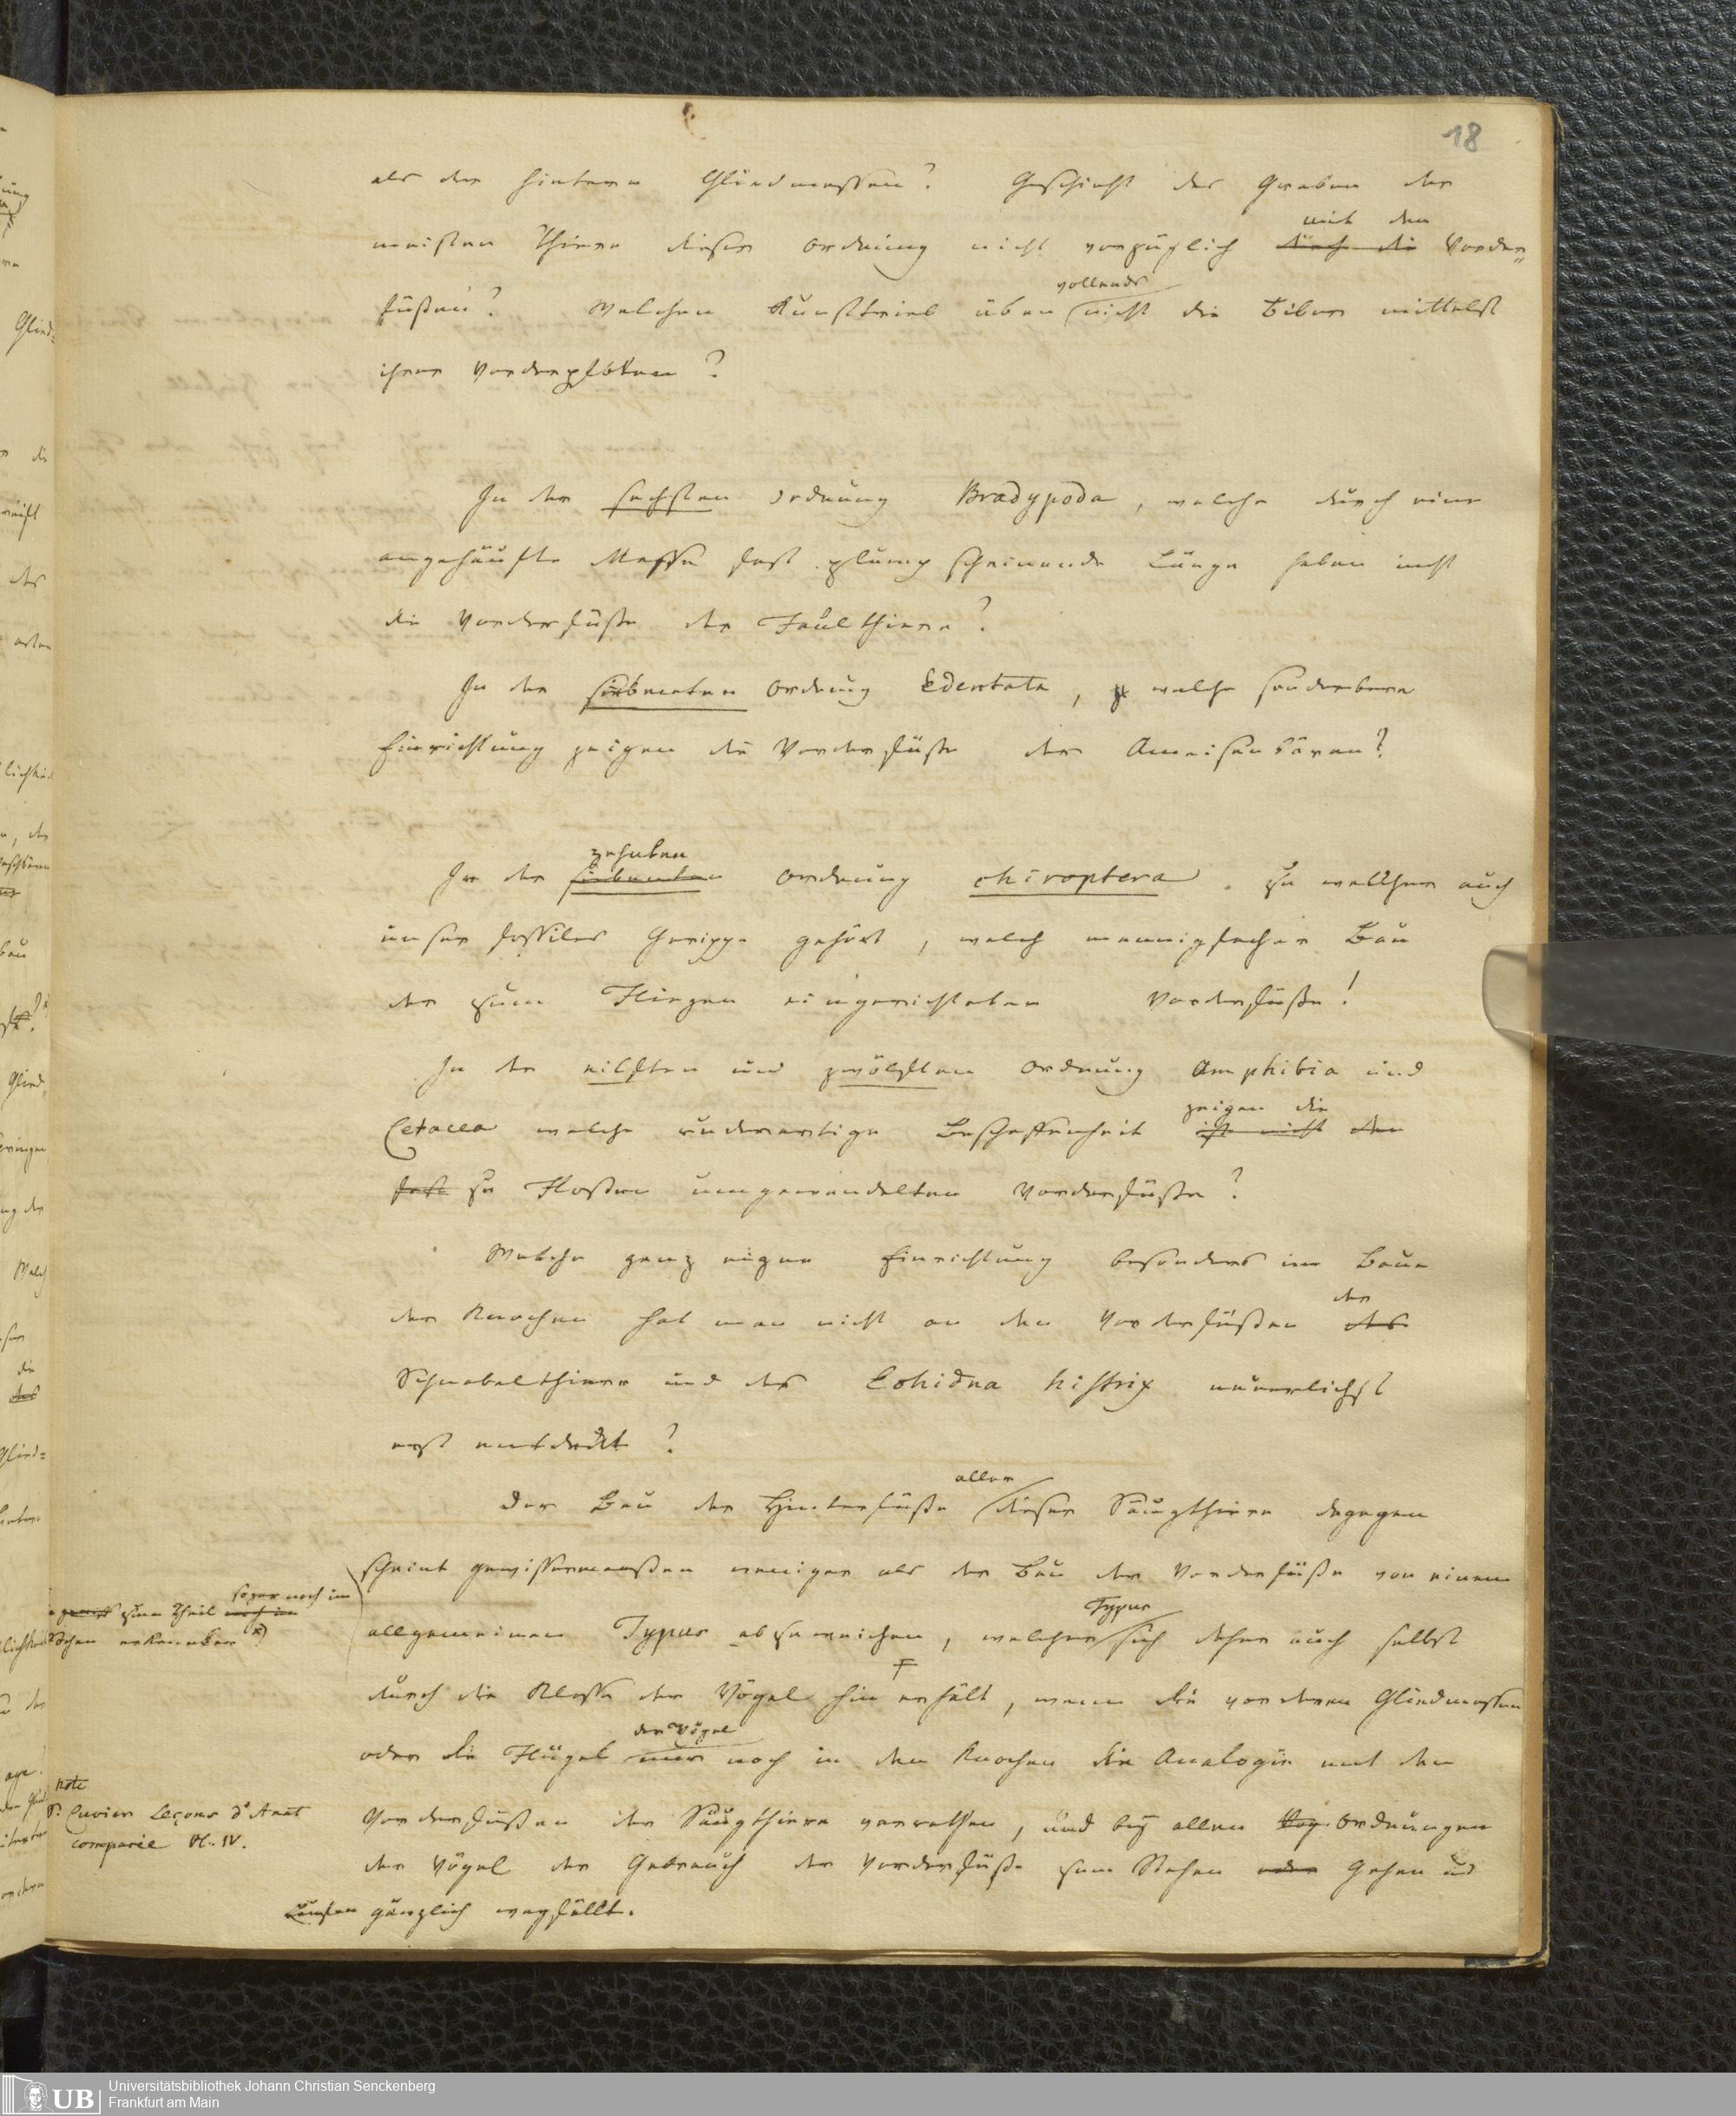 18
als der hintern Gliedmassen? Geschieht das Graben der
mit den
meisten Thiere dieser Ordnung nicht vorzüglich durch die Vorder„
vollends
füßen? Welchen Kunsttrieb üben nicht die Biber mittelst
ihrer Vorderpfoten?
In der sechsten Ordnung Bradypoda, welche durch eine
angehäufte Masse fast plump scheinende Länge haben nicht
die Vorderfüße der Faulthiere?
In der siebenten Ordnung Edentata, welche sonderbare
Einrichtung zeigen die Vorderfüße der Ameisenbären?
zehnten
In der siebenten Ordnung chiroptera. zu welcher auch
unser fossiles Gerippe gehört, welch mannigfacher Bau
der zum Fliegen eingerichteten Vorderfüße!
In der eilften und zwölften Ordnung Amphibia und
zeigen die
Cetacea welche ruderartige Beschaffenheit ist nicht den
fast zu Floßen umgewandelten Vorderfüße?
Welche ganz eigene Einrichtung besonders im Baue
der
der Knochen hat man nicht an den Vorderfüßen des
Schnabelthiere und der Echidna histrix neuerlichst
erst entdeckt?
aller
Der Bau der Hinterfüße dieser Säugthiere dagegen
scheint gewissermaaßen weniger als der Bau der Vorderfüße von einem
Typus
allgemeinen Typus abzuweichen, welcher sich daher auch selbst
durch die Klasse der Vögel hin erhält, wenn die vorderen Gliedmassen
der Vögel
oder die Flügel nur noch in den Knochen die Analogie mit den
Vorderfüßen der Säugthiere verrathen, und bey allen Vög. Ordnungen
der Vögel der Gebrauch der Vorderfüße zum Stehen oder Gehen und
Laufen gänzlich wegfällt.
sogar noch im
zum Theil noch im
erkennbar *)
Note
Cuvier Leçons d'Anat
comparée Pl. IV.
UB
Universitätsbibliothek Johann Christian Senckenberg
Frankfurt am Main